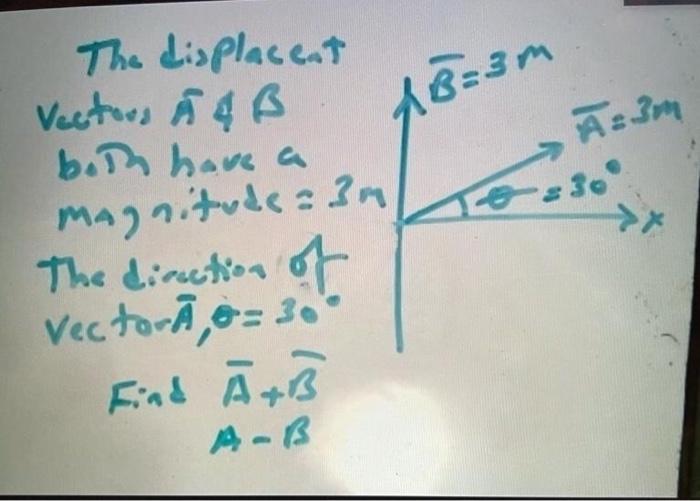 The displacent
Vectors A̅ & B
both have a
magnitude = 3m
The direction of
Vector A̅, θ = 30°
Find A̅ + B̅
A - B
B̅ = 3m
A̅ = 3m
θ = 30°
x